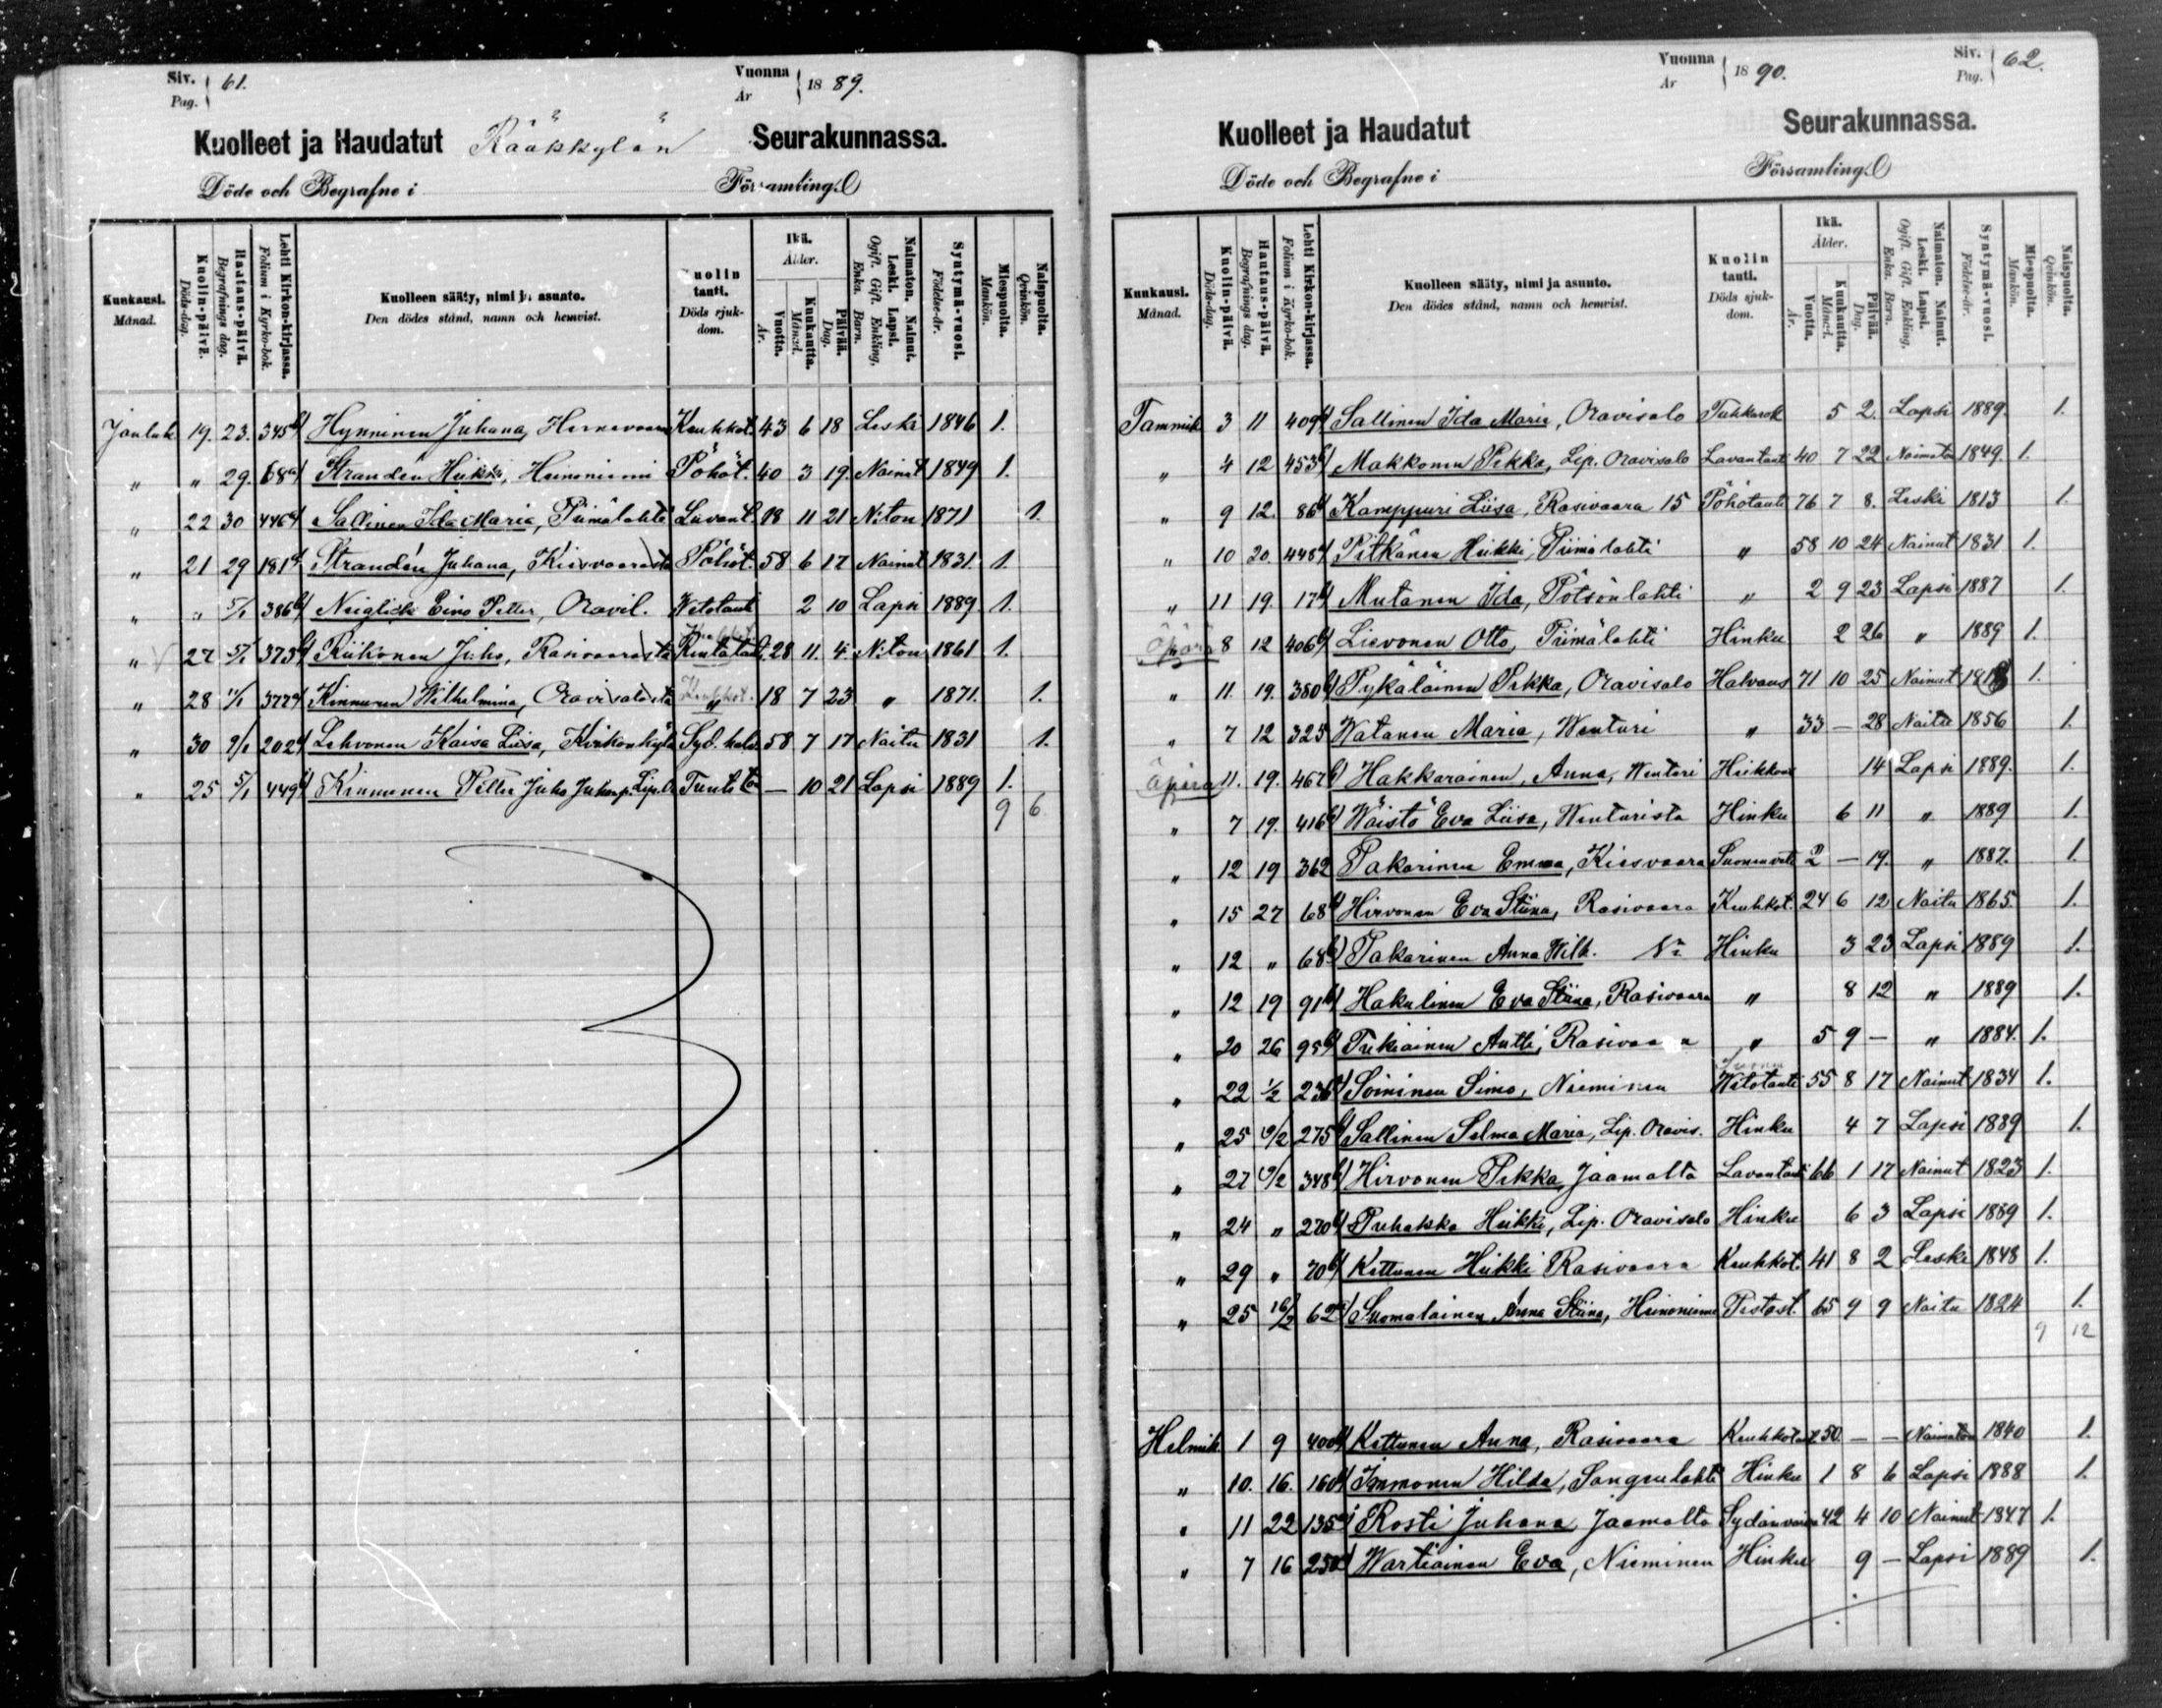 Siv. Pag. 61.
Vuonna År 1889.
Kuolleet ja Haudatut Rääkkylän Seurakunnassa.
Döde och Begrafne i Församling.
Kuukausi. Månad.
Kuolin-päivä. Döds-dag.
Hautaus-päivä. Begrafnings dag.
Lehti Kirkon-kirjassa. Folium i Kyrko-bok.
Kuolleen sääty, nimi ja asunto. Den dödes stånd, namn och hemvist.
Kuolin tauti. Döds sjukdom.
Ikä. Ålder.
Vuotta. År.
Kuukautta. Månad.
Päivää. Dag.
Naimaton. Nainut. Leski. Lapsi. Ogift. Gift. Enkling. Enka. Barn.
Syntymä-vuosi. Födelse-år.
Miespuolta. Mankön.
Naispuolta. Qvinkön.
Jouluk. 19. 23. 345 Hynninen Juhana, Hernevaara Keuhkot. 43 6 18 Leski 1846 1.
" " 29. 68 Strandén Heikki, Heinoniemi Pöhöt. 40 3 19. Nainut 1849 1.
" 22 30 446 Sallinen Ida Maria, Piimälahti Lavant. 18 11 21 N:ton 1871 1.
" 21 29 181 Strandén Juhana, Kiesvaarasta Pöhöt. 58 6 17 Nainut 1831. 1.
" " 5/1 386 Neiglick Eino Petter, Oravil. Wetotauti 2 10 Lapsi 1889 1.
" 27 5/1 373 Riikonen Juho, Rasivaarasta Rintataut. 28 11. 4 N:ton 1861 1.
" 28 11/1 377 Kinnunen Wilhelmina, Oravisalosta Keuhkot. 18 7 23 " 1871. 1.
" 30 9/1 202 Lehvonen Kaisa Liisa, Kirkonkylä Syd. halv. 58 7 17 Naitu 1831 1.
" 25 5/1 449 Kinnunen Petter Juho Juhanp. Lip. O. — 10 21 Lapsi 1889 1.
9 6
Vuonna År 1890.
Siv. Pag. 62.
Kuolleet ja Haudatut Seurakunnassa.
Döde och Begrafne i Församling.
Kuukausi. Månad.
Kuolin-päivä. Döds-dag.
Hautaus-päivä. Begrafnings dag.
Lehti Kirkon-kirjassa. Folium i Kyrko-bok.
Kuolleen sääty, nimi ja asunto. Den dödes stånd, namn och hemvist.
Kuolin tauti. Döds sjukdom.
Ikä. Ålder.
Vuotta. År.
Kuukautta. Månad.
Päivää. Dag.
Naimaton. Nainut. Leski. Lapsi. Ogift. Gift. Enkling. Enka. Barn.
Syntymä-vuosi. Födelse-år.
Miespuolta. Mankön.
Naispuolta. Qvinkön.
Tammik 3 11 409 Sallinen Ida Maria, Oravisalo Tuhkarok 5 2. Lapsi 1889. 1.
" 4 12 453 Makkonen Pekka, Lip. Oravisalo Lavantauti 40 7 22 Naimaton 1849. 1.
" 9 12. 86 Kamppuri Liisa, Rasivaara 15 Pöhötauti 76 7 8. Leski 1813 1.
" 10 20. 448 Pitkänen Heikki, Piimälahti " 58 10 24 Nainut 1831 1.
" 11 19. 17 Mutanen Ida, Pötsönlahti " 2 9 23 Lapsi 1887 1.
Äpärä 8 12 406 Lievonen Otto, Piimälahti Hinku 2 26 " 1889 1.
" 11. 19. 380 Pykäläinen Pekka, Oravisalo Halvaus 71 10 25 Nainut 1818 1.
" 7 12 325 Watanen Maria, Wenturi " 33 — 28 Naitu 1856 1.
Äpärä 11. 19. 467 Hakkarainen, Anna, Wenturi Heikkous 14 Lapsi 1889. 1.
" 7 19. 416 Wäistö Eva Liisa, Wenturista Hinku 6 11 " 1889 1.
" 12 19 362 Pakarinen Emma, Kiesvaara Suonenveto 2 — 19. " 1887. 1.
" 15 27 68 Hirvonen Eva Stiina, Rasivaara Keuhkot. 24 6 12 Naitu 1865. 1.
" 12 " 68 Pakarinen Anna Wilh. Hinku 3 23 Lapsi 1889 1.
" 12 19 91 Hakulinen Eva Stiina, Rasivaara " 8 12 " 1889 1.
" 20 26 95 Tukiainen Antti, Rasivaara " 5 9 — " 1884. 1.
" 22 1/2 236 Soininen Simo, Nieminen Suonen Wetotauti 55 8 17 Nainut 1834 1.
" 25 9/2 275 Sallinen Selma Maria, Lip. Oravis. Hinku 4 7 Lapsi 1889 1.
" 27 9/2 348 Hirvonen Pekka, Jaamalta Lavantauti 66 1 17 Nainut 1823 1.
" 24 " 270 Puhakka Heikki, Lip. Oravisalo Hinku 6 3 Lapsi 1889 1.
" 29 " 70 Kettunen Heikki Rasivaara Keuhkot. 41 8 2 Leski 1848 1.
" 25 16/2 62 Suomalainen Anna Stiina, Heinoniemi Pistost. 65 9 9 Naitu 1824 1.
9 12
Helmik. 1 9 400 Kettunen Anna, Rasivaara Keuhkotaut 50. — — Naimaton 1840 1.
" 10. 16. 160 Immonen Hilda, Sangenlahti Hinku 1 8 6 Lapsi 1888 1.
" 11 22 135 Rosti Juhana, Jaamalta Sydänvaiva 42 4 10 Nainut 1847 1.
" 7 16 250 Wartiainen Eva, Nieminen Hinku 9 — Lapsi 1889 1.